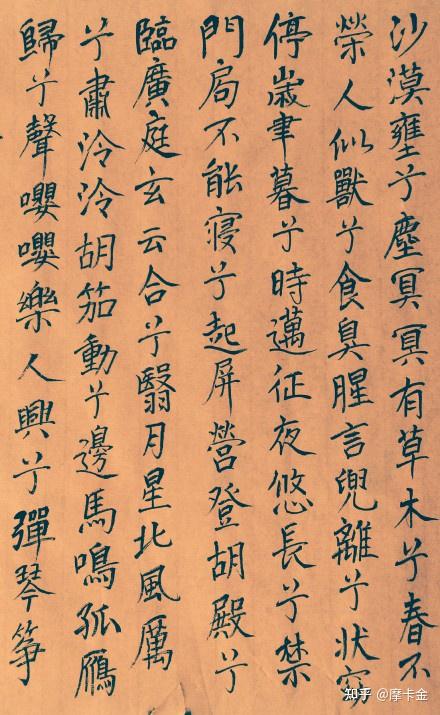 沙漠壅兮塵冥冥有草木兮春不
榮人似獸兮食臭腥言兜離兮状窈
停歲聿暮兮時邁征夜悠長兮禁
門局不能寢兮起屏營登胡殿兮
臨廣庭玄云合兮翳月星北風厲
兮肅泠泠胡笳動兮邊馬鳴孤鴈
歸兮聲嚶嚶樂人興兮彈琴箏
知乎 @摩卡金